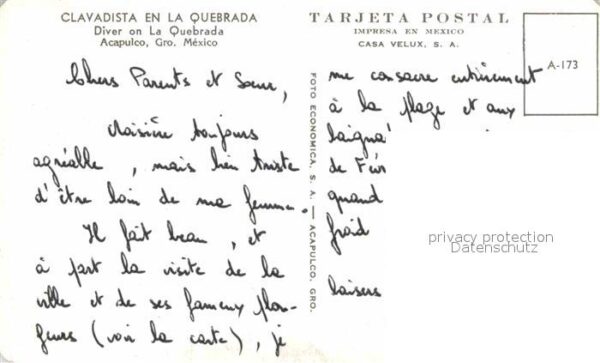 CLAVADISTA EN LA QUEBRADA
Diver on La Quebrada
Acapulco, Gro. México
TARJETA POSTAL
IMPRESA EN MEXICO
CASA VELUX, S. A.
A-173
FOTO ECONOMICA, S. A. — ACAPULCO, GRO.
Chers Parents et Soeur,
Croisière toujours
agréable, mais bien triste
d'être loin de ma femme.
Il fait beau, et
à part la visite de la
ville et de ses fameux plon-
geurs (voir la carte), je
me consacre entièrement
à la plage et aux
baigna
de Fév
quand
froid
baisers
privacy protection
Datenschutz